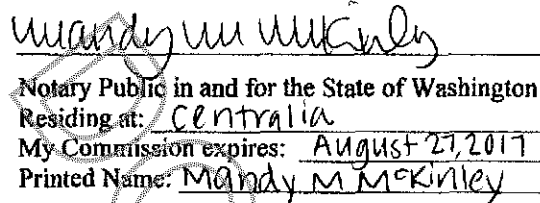 Mandy M McKinley
Notary Public in and for the State of Washington
Residing at: Centralia
My Commission expires: August 27, 2017
Printed Name: Mandy M McKinley